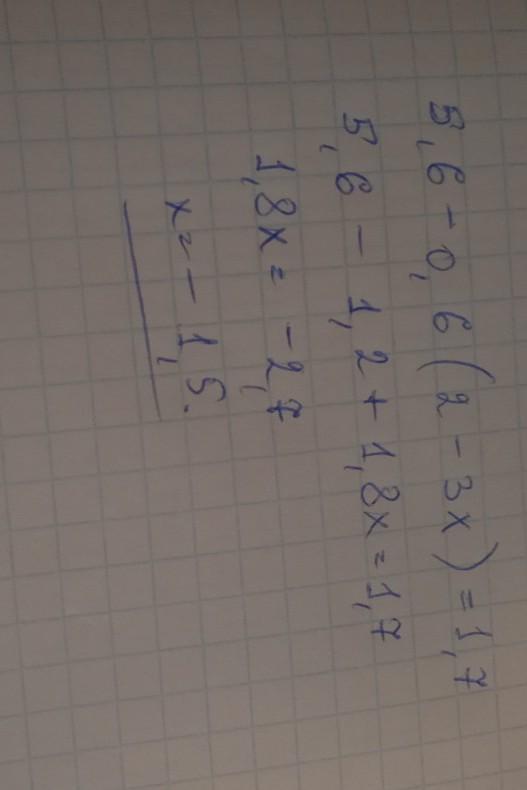 5,6 - 0,6(2 - 3x) = 1,7
5,6 - 1,2 + 1,8x = 1,7
1,8x = -2,7
x = - 1,5.